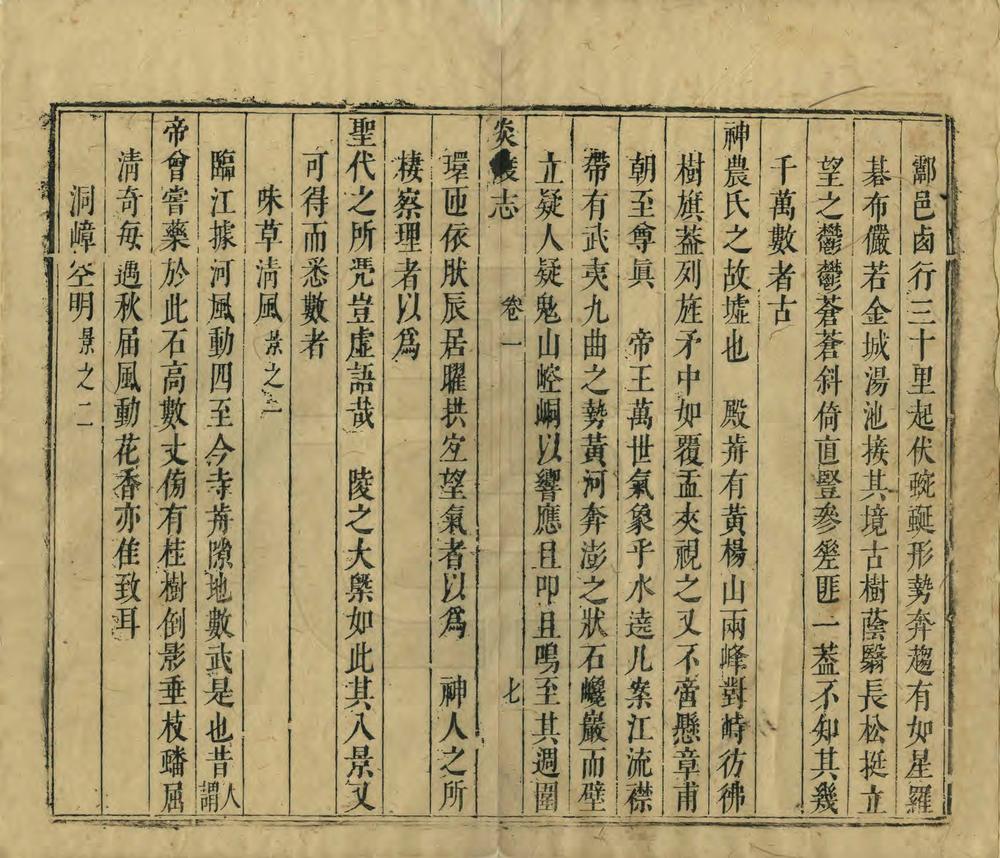 酃邑鹵行三十里起伏蜿蜒形勢奔趨有如星羅
碁布儼若金城湯池接其境古樹蔭翳長松挺立
望之鬱鬱蒼蒼斜倚直豎參差匪一葢不知其幾
千萬數者古
神農氏之故墟也　殿前有黃楊山兩峰對峙彷彿
樹旗葢列旌矛中如覆盂夾視之又不啻懸章甫
朝至尊眞　帝王萬世氣象乎水遶几案江流襟
帶有武夷九曲之勢黃河奔澎之狀石巉巖而壁
立疑人疑鬼山崆峒以響應且叩且鳴至其週圍
炎陵志　卷一　七
環匝依肰辰居曜拱宜望氣者以爲　神人之所
棲察理者以爲
聖代之所凭豈虛語哉　陵之大槩如此其八景又
可得而悉數者
味草清風景之一
臨江據河風動四至今寺前隙地數武是也昔人謂
帝曾嘗藥於此石高數丈傍有桂樹倒影垂枝蟠屈
清奇每遇秋屆風動花香亦佳致耳
洞嶂空明景之二